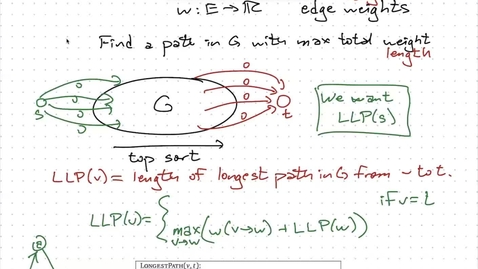 w: E → ℝ edge weights
• Find a path in G with max total weight
length
0 0
0 0
0 G 0
s 0 0 t
0 0
We want
LLP(s)
top sort
LLP(v) = length of longest path in G from v to t.
if v = t
LLP(v) = { max v→w (w(v→w) + LLP(w))
LONGESTPATH(v, t):